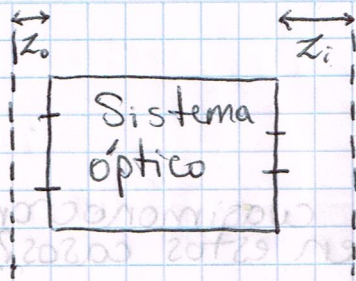 Zₒ
Zᵢ
Sistema
óptico